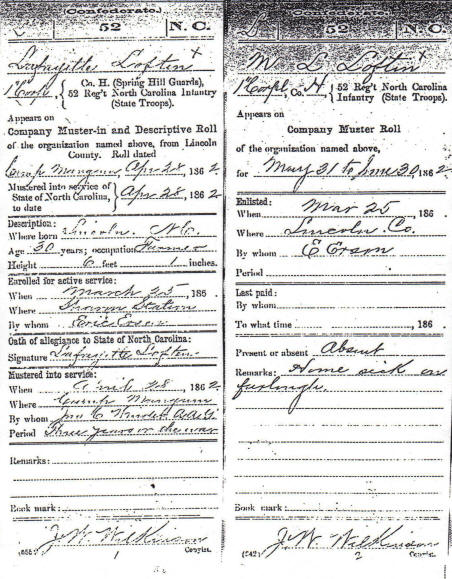 Confederate.
52 N. C.
Lafayitte Loftin x
1 Corp'l, Co. H. (Spring Hill Guards),
52 Reg't North Carolina Infantry
(State Troops).
Appears on
Company Muster-in and Descriptive Roll
of the organization named above, from Lincoln
County. Roll dated
Camp Mangum, Apr 28, 1862
Mustered into service of
State of North Carolina, Apr 28, 1862
Description:
Where born Lincoln, N.C.
Age 30 years; occupation Farmer
Height 6 feet 1 inches.
Enrolled for active service:
When March 25, 186 .
Where Station
By whom Eric Erson
Oath of allegiance to State of North Carolina:
Signature Lafayitte Loftin
Mustered into service:
When April 28, 1862
Where Camp Mangum
By whom Jno C Winder A.A.G.
Period Three years or the war
Remarks:
Book mark:
J. W. Wilkinson
(655) 1 Copyist.
L 52 N. C.
M. L Loftin x
1 Corpl, Co. H, 52 Reg't North Carolina
Infantry (State Troops).
Appears on
Company Muster Roll
of the organization named above,
for May 31 to June 30, 1862
Enlisted:
When Mar 25, 186 .
Where Lincoln Co.
By whom E Erson
Period
Last paid:
By whom
To what time , 186 .
Present or absent Absent
Remarks: Home sick on
furlough.
Book mark:
J. W. Wilkinson
(642) 2 Copyist.